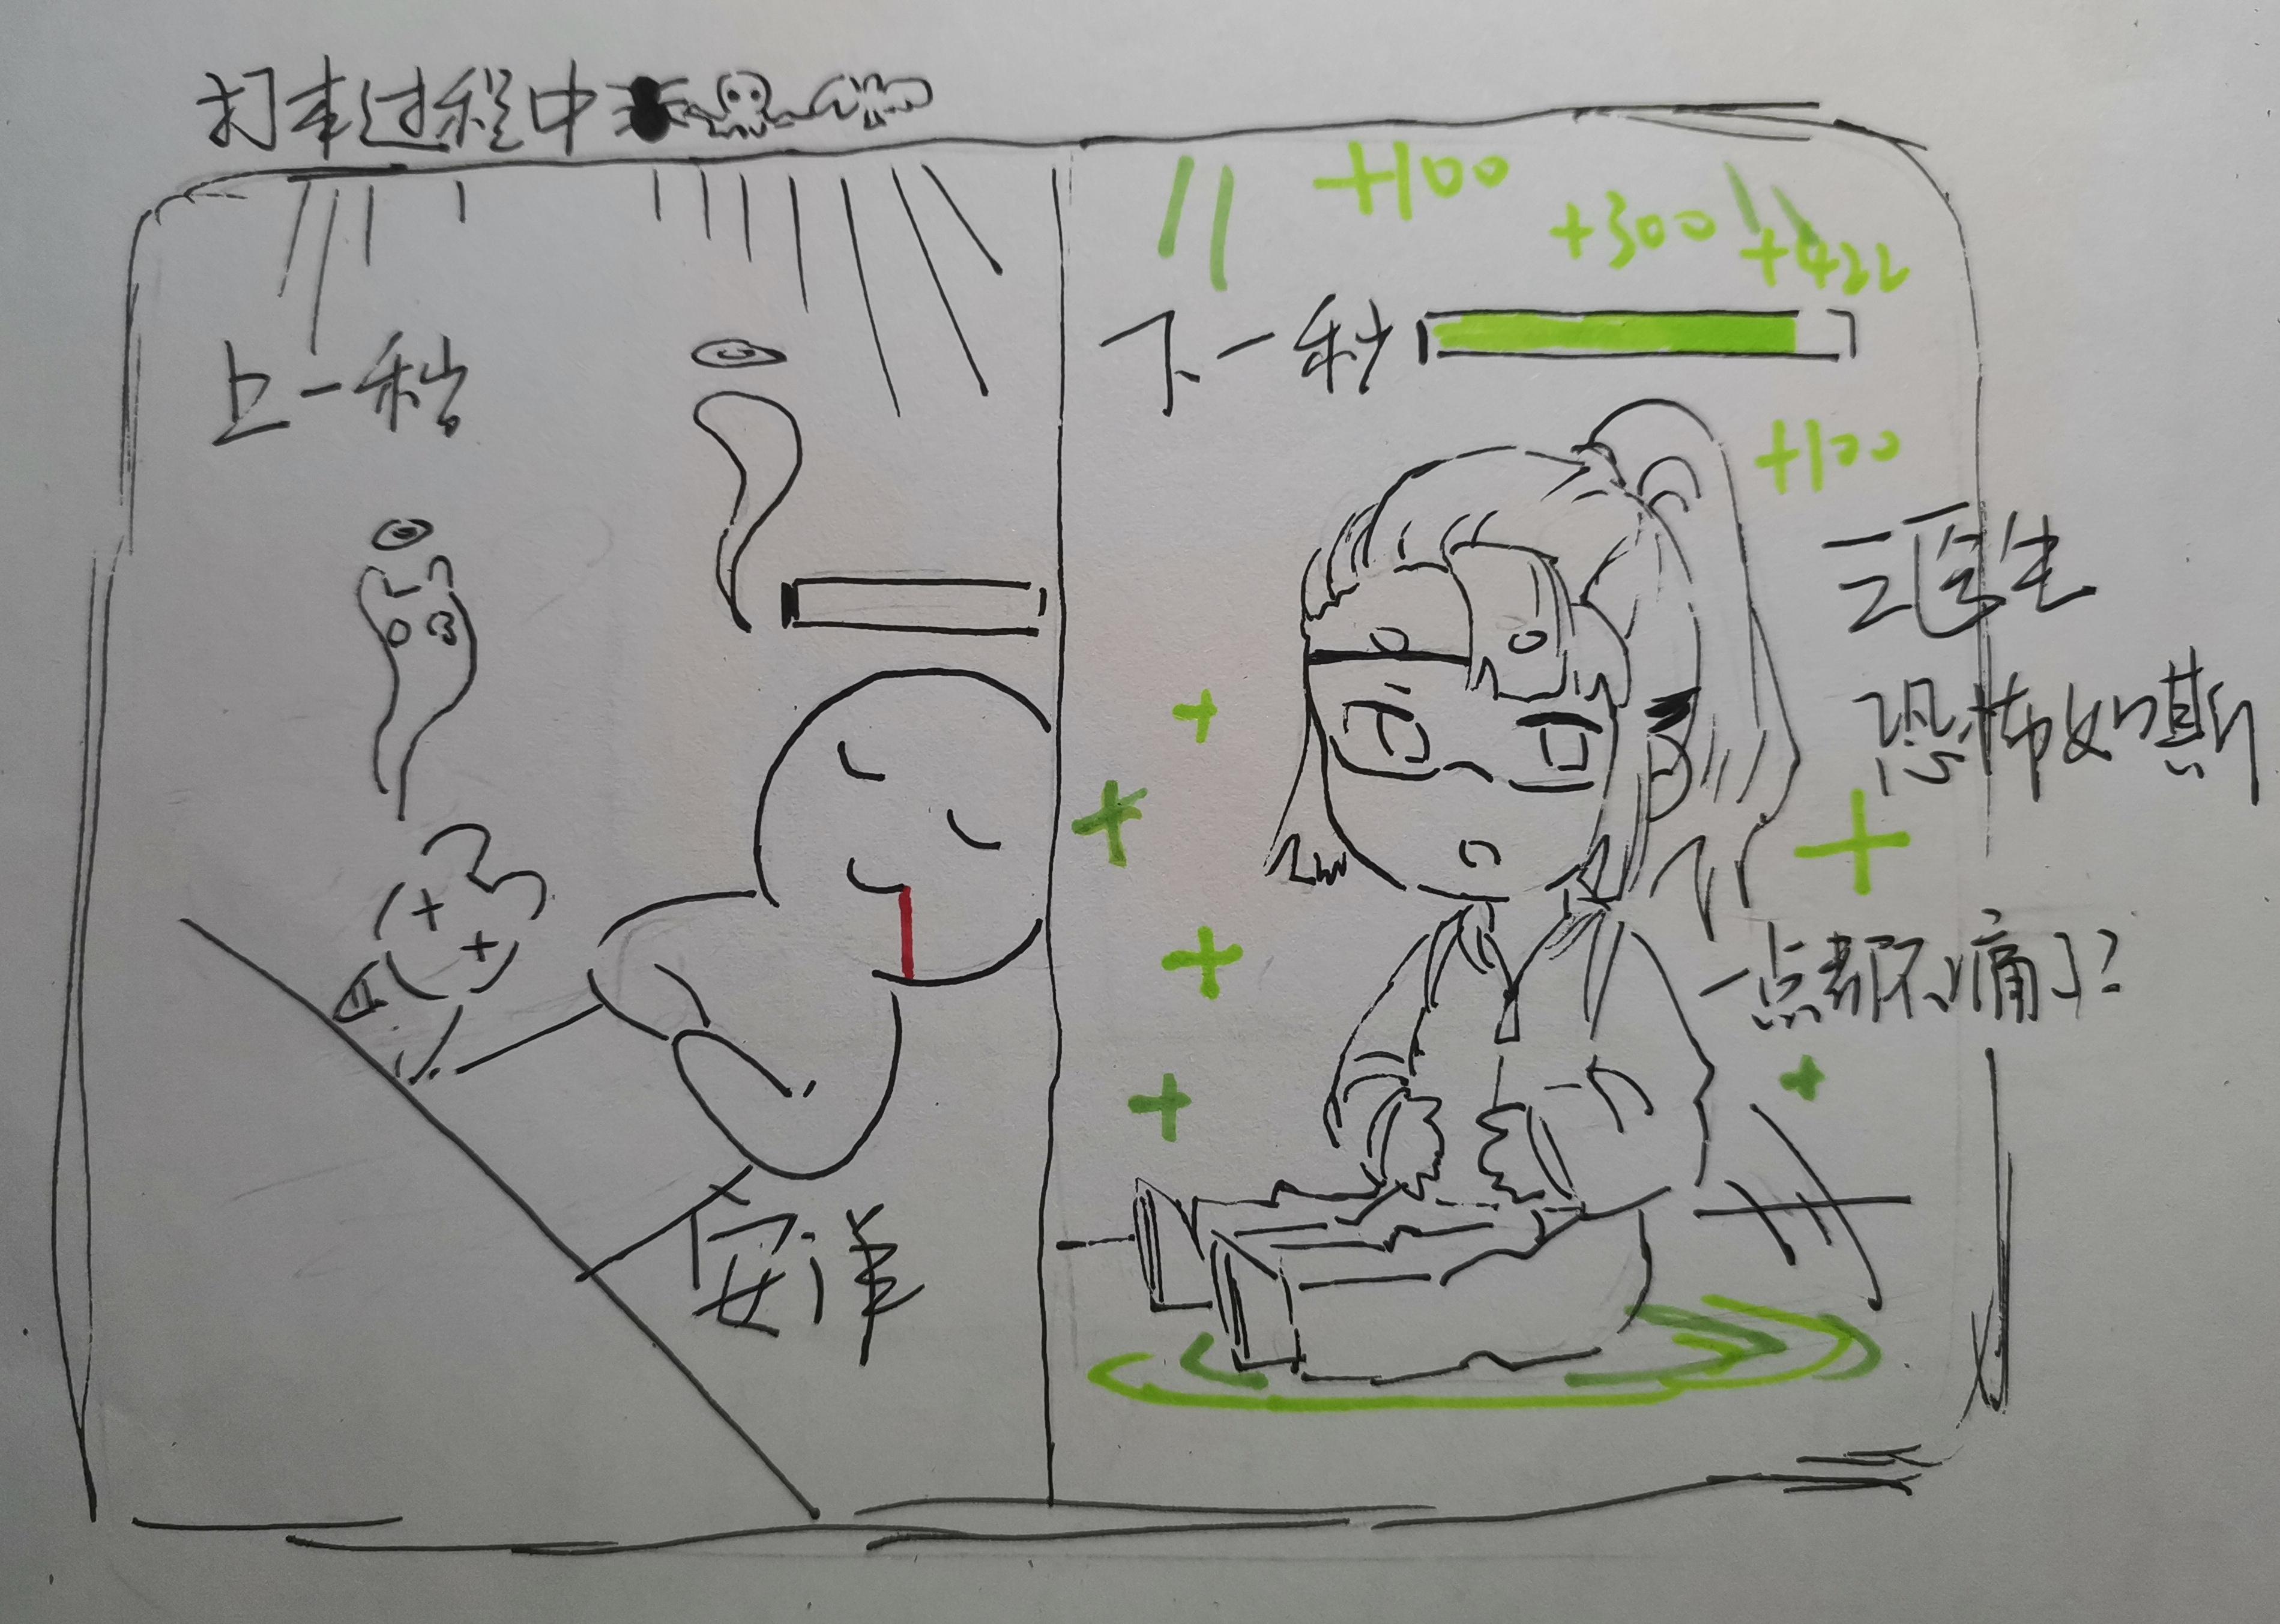 打本过程中
上一秒
安洋
+100
+300
+422
下一秒
+100
三医生
恐怖如斯
一点都不痛了?